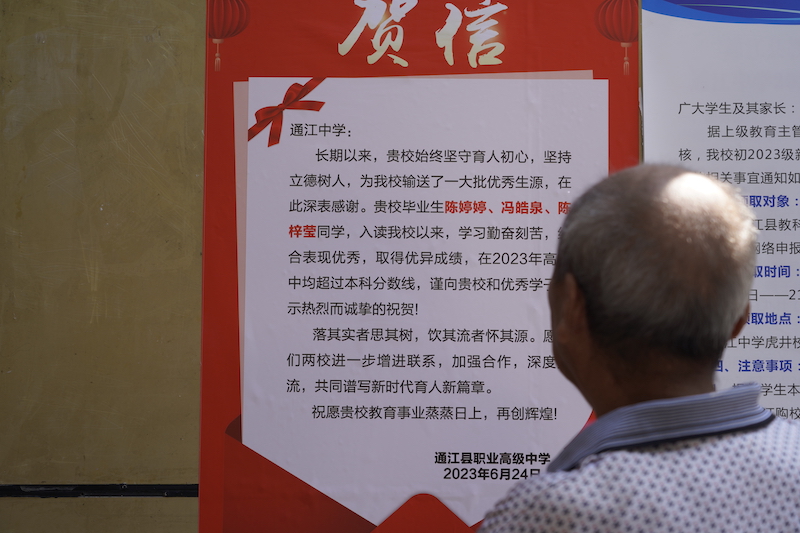 贺信
通江中学：
长期以来，贵校始终坚守育人初心，坚持
立德树人，为我校输送了一大批优秀生源，在
此深表感谢。贵校毕业生陈婷婷、冯皓泉、陈
梓莹同学，入读我校以来，学习勤奋刻苦，
合表现优秀，取得优异成绩，在2023年高
中均超过本科分数线，谨向贵校和优秀学子
示热烈而诚挚的祝贺！
落其实者思其树，饮其流者怀其源。愿
们两校进一步增进联系，加强合作，深度
流，共同谱写新时代育人新篇章。
祝愿贵校教育事业蒸蒸日上，再创辉煌！
通江县职业高级中学
2023年6月24日
广大学生及其家长：
据上级教育主管
核，我校初2023级新
相关事宜通知如
取对象：
江县教科
网络申报
取时间：
日——21
取地点：
江中学虎井校
四、注意事项：
学生本
购校